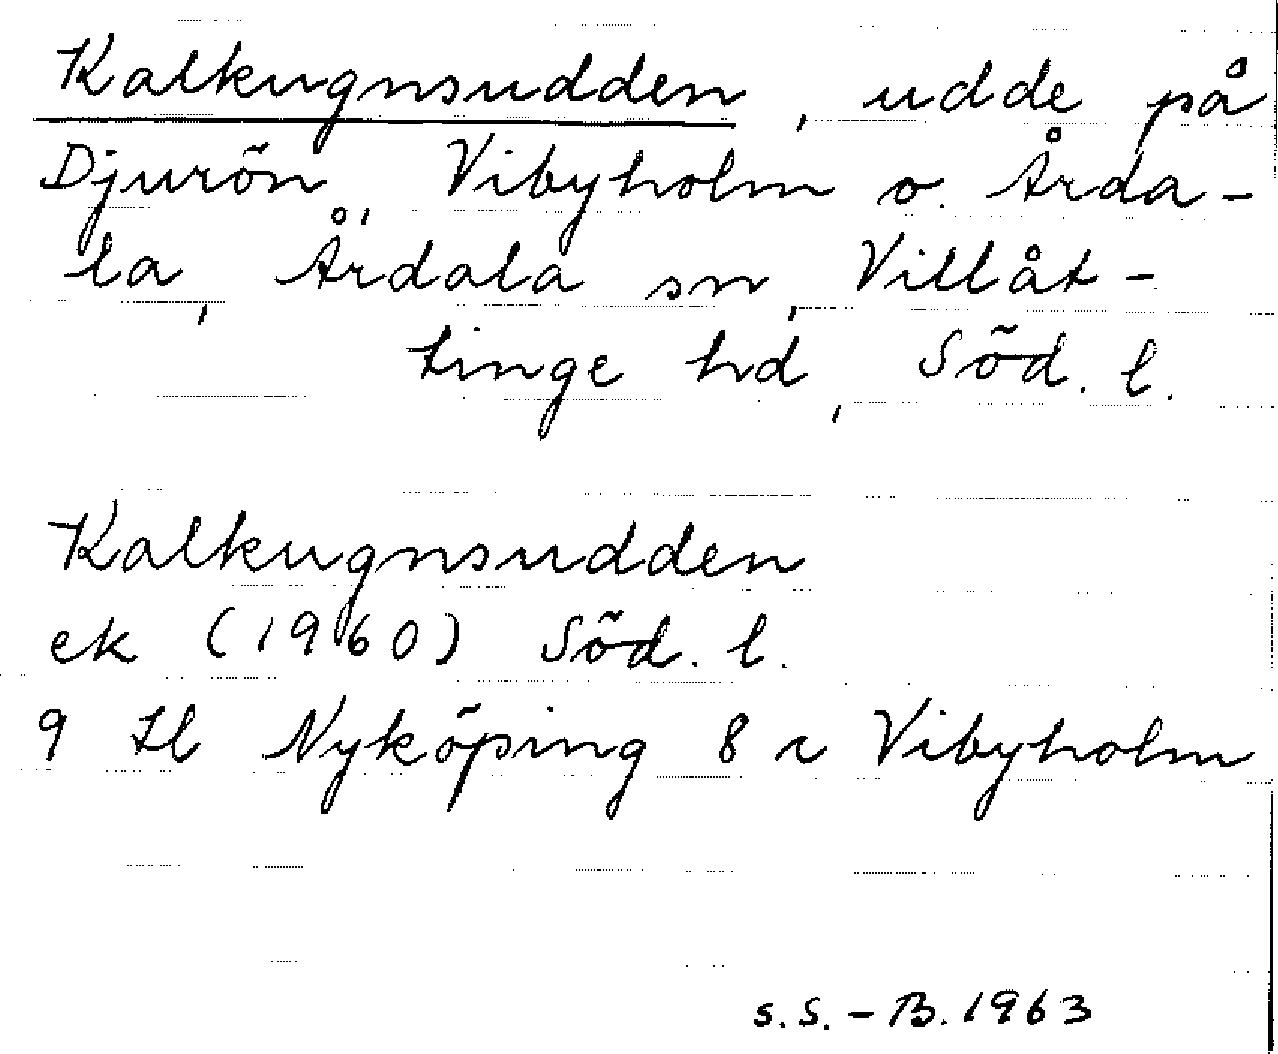 Kalkugnsudden, udde på
Djurön, Vibyholm o. Årda-
la, Årdala sn, Villåt-
tinge hd, Söd. l.
Kalkugnsudden
ek (1960) Söd. l.
9 H Nyköping 8 c Vibyholm
S.S.-B. 1963